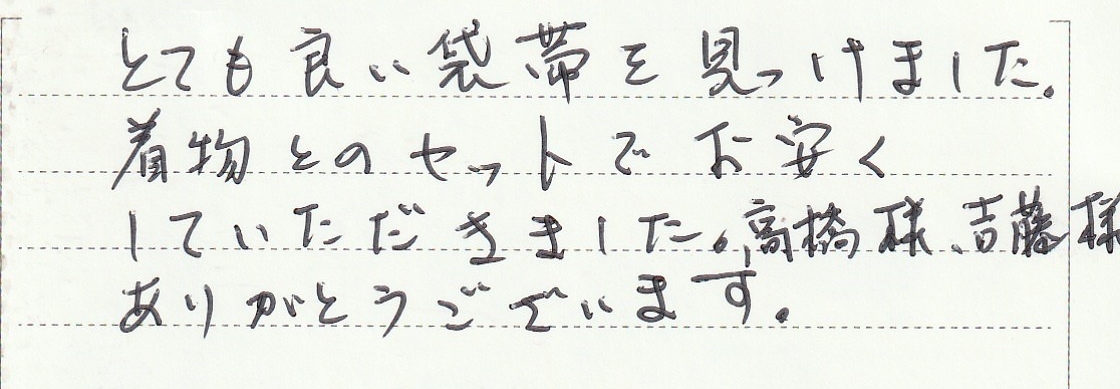 とても良い袋帯を見つけました。
着物とのセットでお安く
していただきました。高橋様、吉藤様
ありがとうございます。